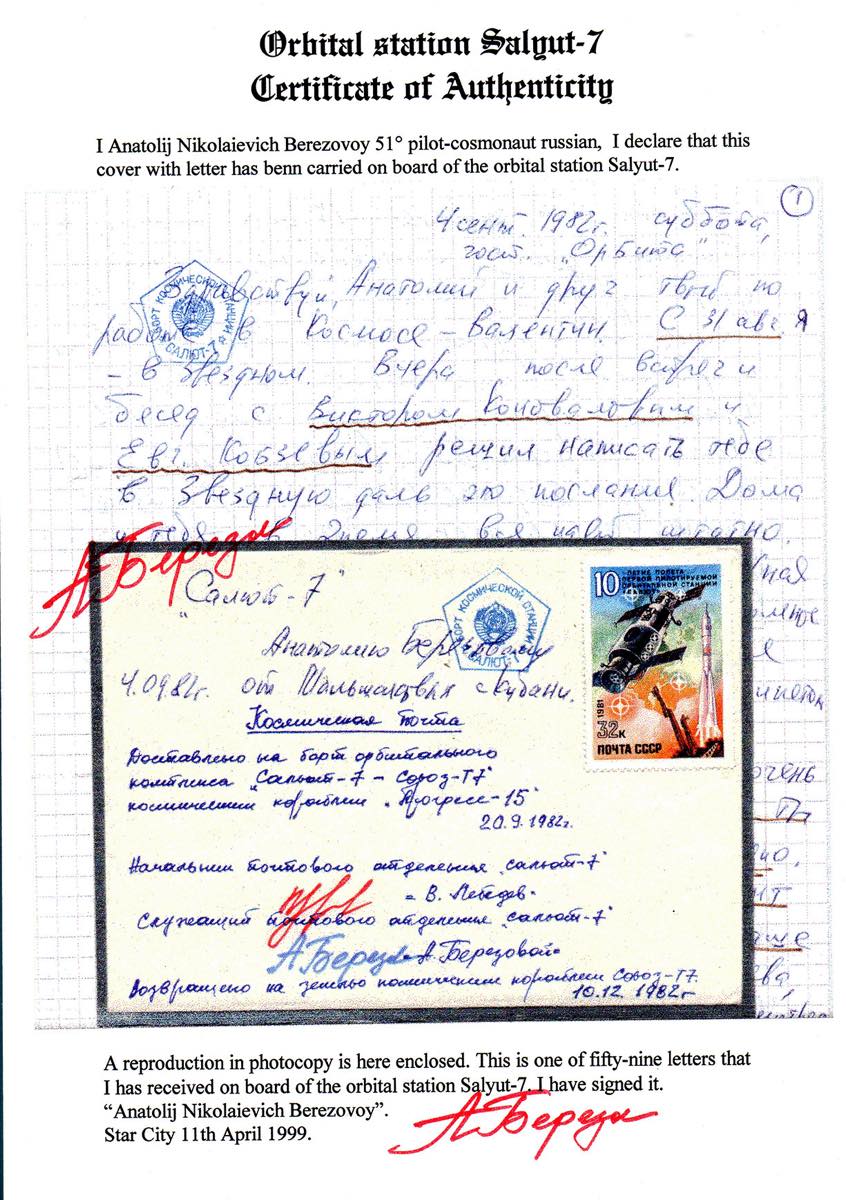 Orbital station Salyut-7
Certificate of Authenticity
I Anatolij Nikolaievich Berezovoy 51° pilot-cosmonaut russian, I declare that this
cover with letter has benn carried on board of the orbital station Salyut-7.
1
4 сент. 1982г. суббота,
гост. „Орбита"
Здравствуй, Анатолий и друг твой по
работе в Космосе – Валентин. С 31 авг. я
– в Звездном. Вчера после встреч и
бесед с Виктором Коноваловым и
Евг. Кобзевым решил написать тебе
в Звездную даль это послание. Дома
штатно.
БОРТ КОСМИЧЕСКОЙ СТАНЦИИ
САЛЮТ-7
А Берез
"Салют-7"
БОРТ КОСМИЧЕСКОЙ СТАНЦИИ
САЛЮТ-7
Анатолию Березовому
4.09.82г. от
с Кубани.
Космическая почта
10
-ЛЕТИЕ ПОЛЕТА
ПЕРВОЙ ПИЛОТИРУЕМОЙ
ОРБИТАЛЬНОЙ СТАНЦИИ
«САЛЮТ»
1981
32к
ПОЧТА СССР
Доставлено на борт орбитального
комплекса „Салют-7 – Союз-Т7"
космическим кораблем „Прогресс-15"
20.9.1982г.
Начальник почтового отделения „Салют-7"
= В. Лебедев =
Служащий почтового отделения „Салют-7"
А Берез = А. Березовой =
Возвращено на землю космическим кораблем Союз-Т7.
10.12.1982г
очень
A reproduction in photocopy is here enclosed. This is one of fifty-nine letters that
I has received on board of the orbital station Salyut-7. I have signed it.
“Anatolij Nikolaievich Berezovoy”.
Star City 11th April 1999.
А Берез